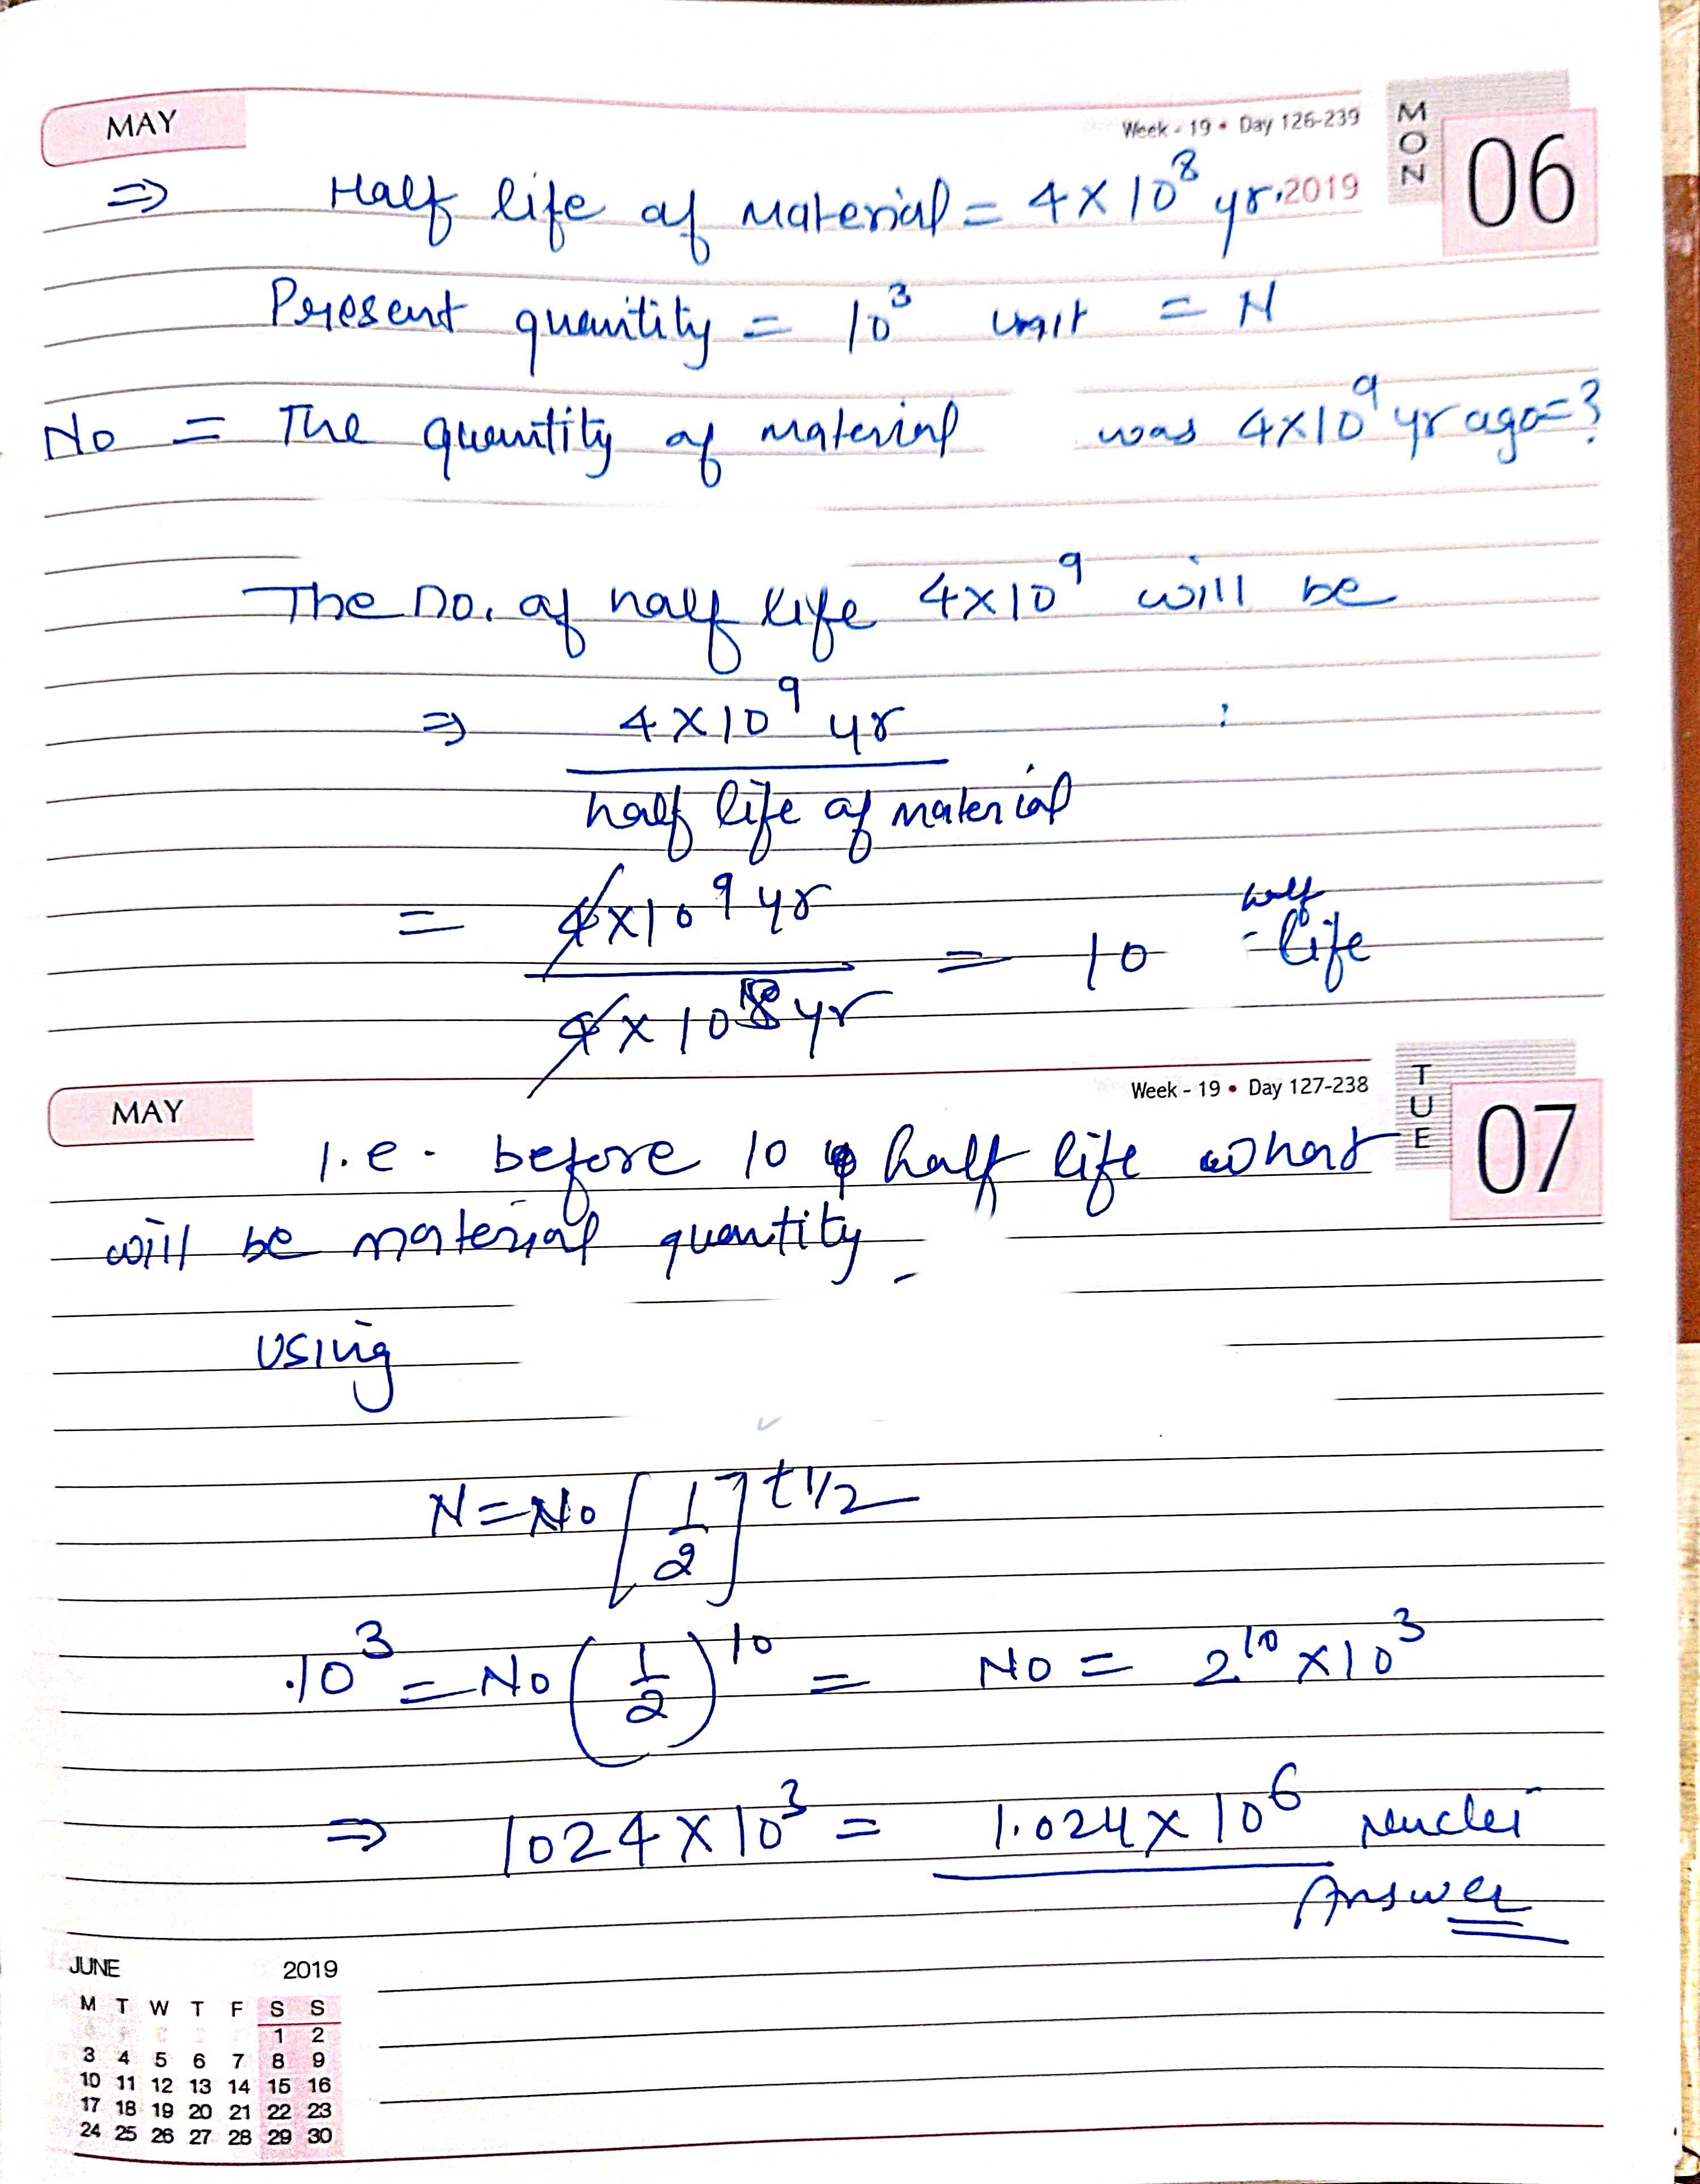 MAY
Week - 19 • Day 126-239
MON
06
⇒ Half life of Material = 4 × 10⁸ yr.
2019
Present quantity = 10³ unit = N
No = The quantity of material was 4×10⁹ yr ago=?
The no. of half life 4×10⁹ will be
⇒ 4×10⁹ yr
half life of material
= 4×10⁹ yr
= 10 half life
4×10⁸ yr
MAY
Week - 19 • Day 127-238
TUE
07
I.e. before 10 half life what
will be material quantity.
Using
N=No [1/2] t1/2
10³ = No (1/2)¹⁰ = No = 2¹⁰ × 10³
⇒ 1024 × 10³ = 1.024 × 10⁶ nuclei
Answer
JUNE 2019
M T W T F S S
1 2
3 4 5 6 7 8 9
10 11 12 13 14 15 16
17 18 19 20 21 22 23
24 25 26 27 28 29 30